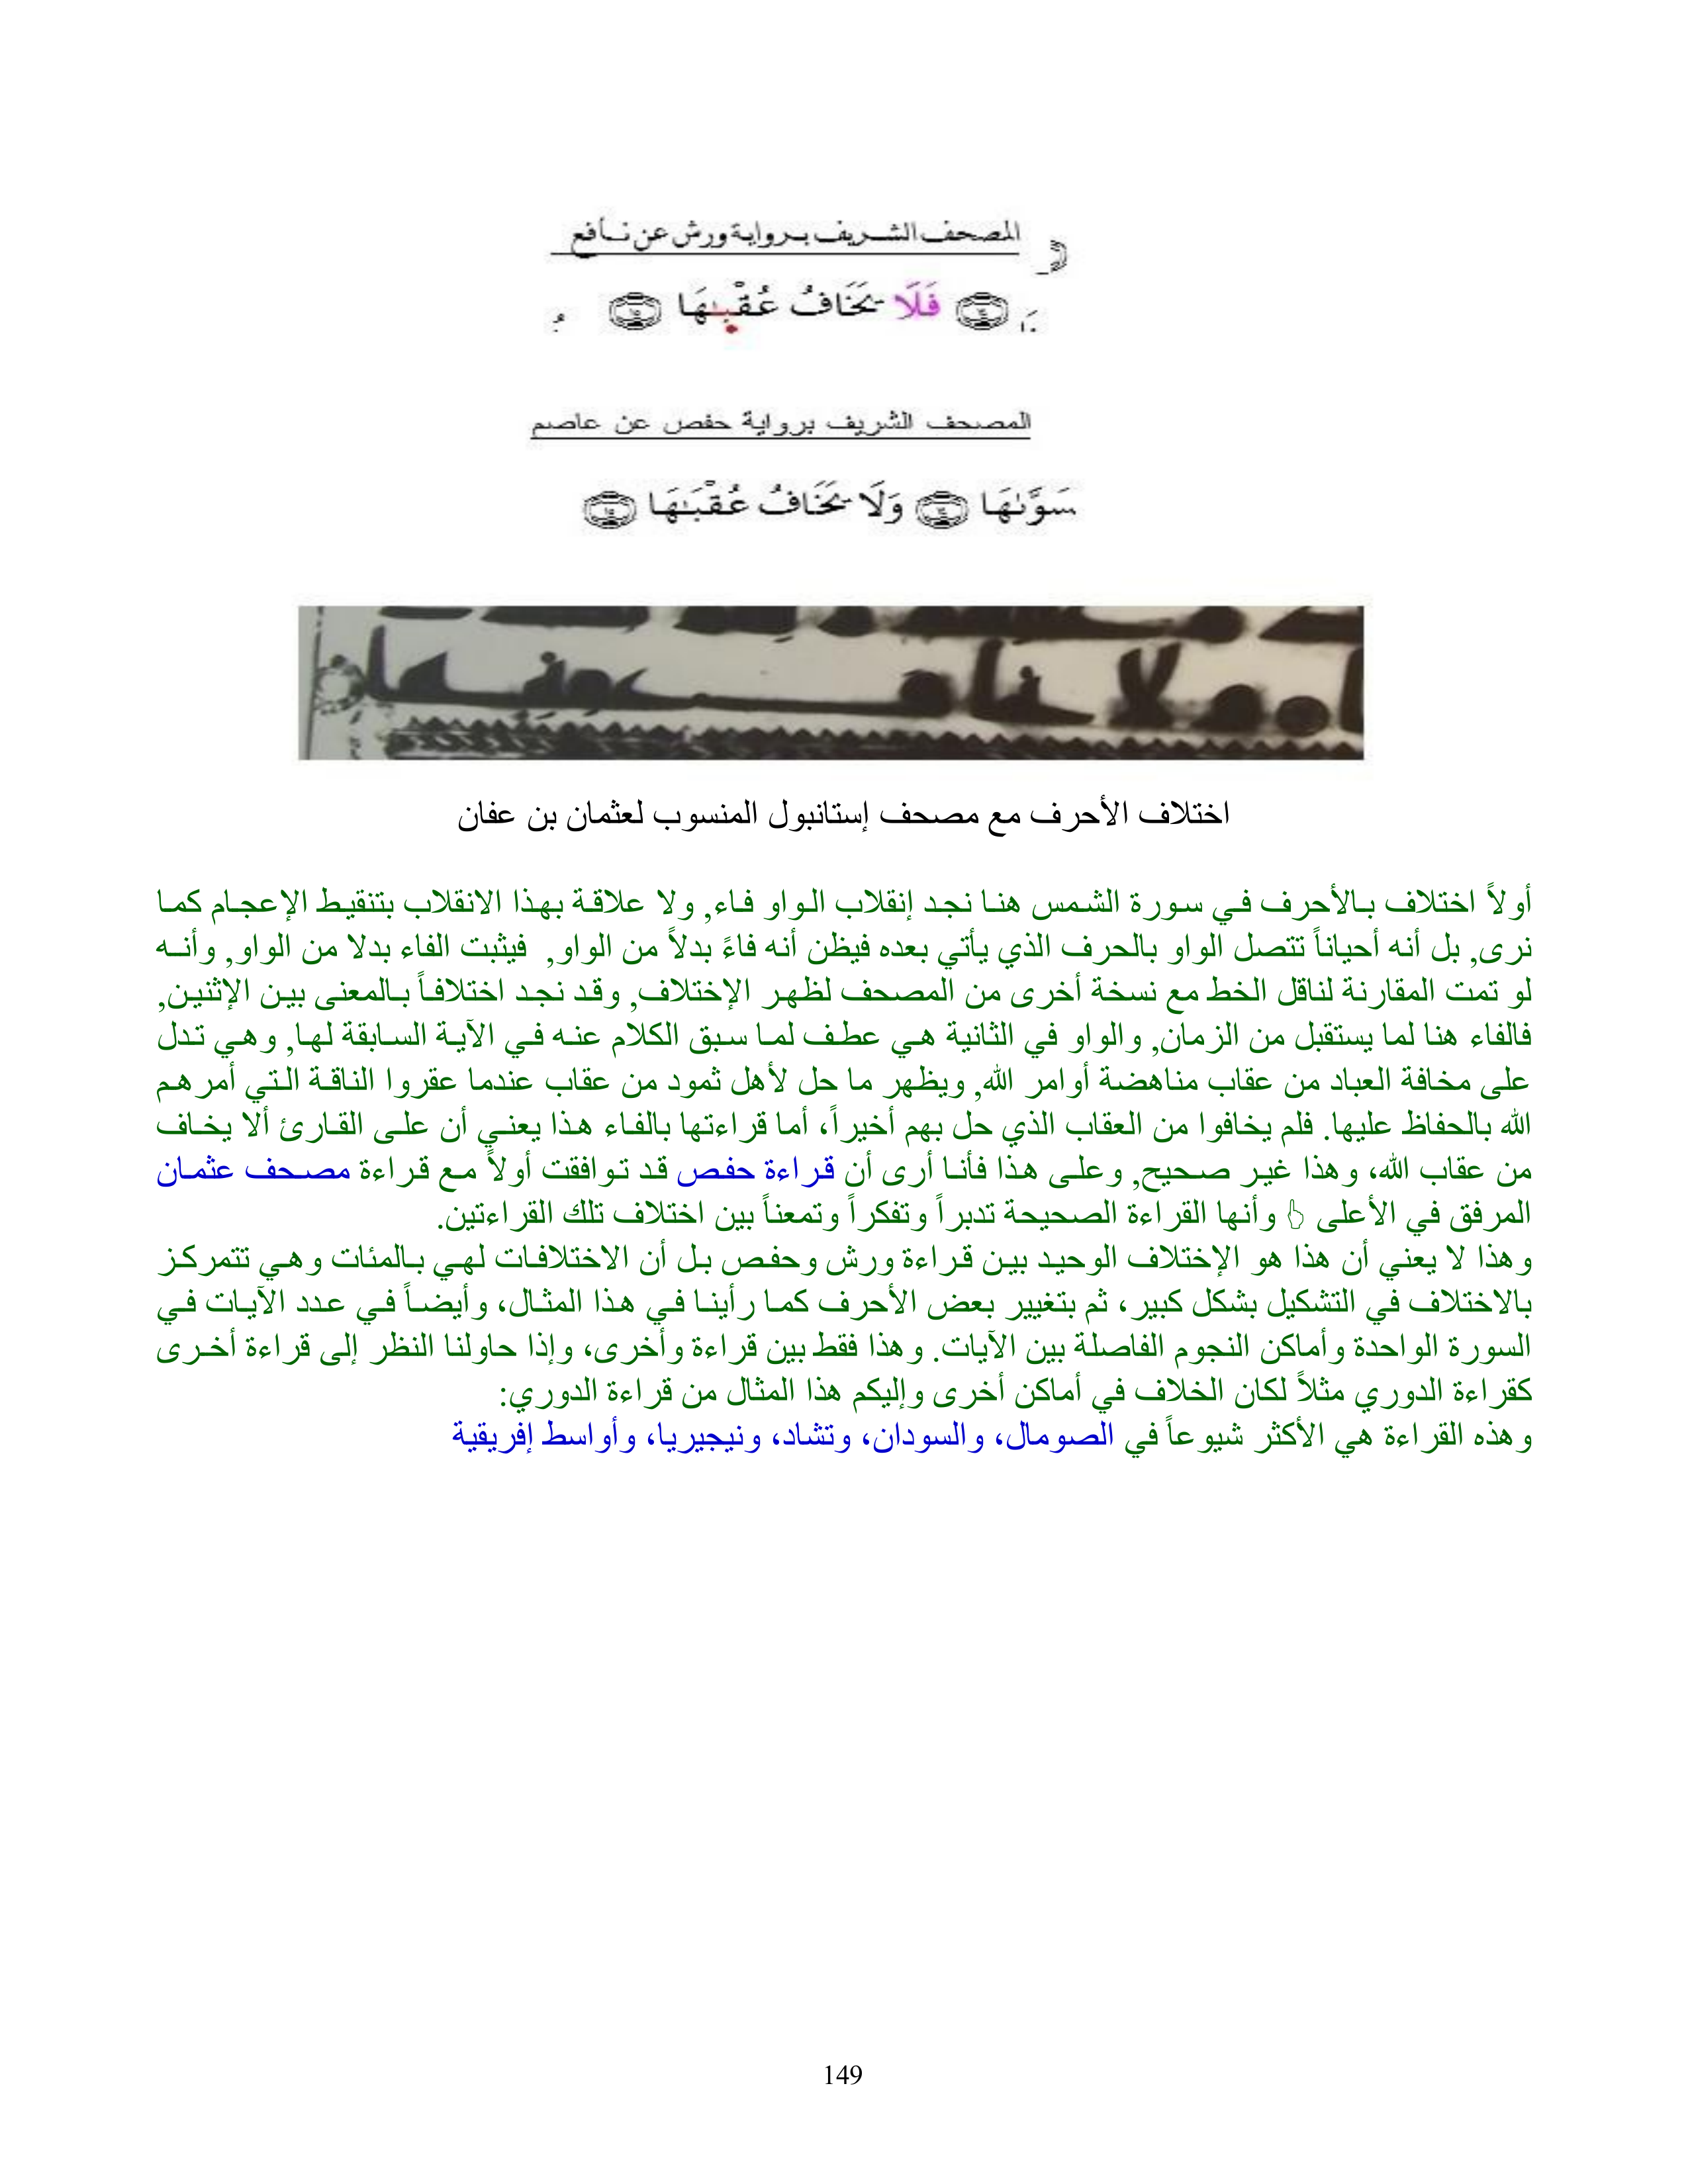 المصحف الشريف برواية ورش عن نافع
فَلَا يَخَافُ عُقْبَٰهَا
المصحف الشريف برواية حفص عن عاصم
سَوَّىٰهَا ۝ وَلَا يَخَافُ عُقْبَٰهَا
ولا يخاف عقبها
اختلاف الأحرف مع مصحف إستانبول المنسوب لعثمان بن عفان
أولاً اختلاف بالأحرف في سورة الشمس هنا نجد إنقلاب الواو فاء, ولا علاقة بهذا الانقلاب بتنقيط الإعجام كما
نرى, بل أنه أحياناً تتصل الواو بالحرف الذي يأتي بعده فيظن أنه فاءً بدلاً من الواو, فيثبت الفاء بدلا من الواو, وأنه
لو تمت المقارنة لناقل الخط مع نسخة أخرى من المصحف لظهر الإختلاف, وقد نجد اختلافاً بالمعنى بين الإثنين,
فالفاء هنا لما يستقبل من الزمان, والواو في الثانية هي عطف لما سبق الكلام عنه في الآية السابقة لها, وهي تدل
على مخافة العباد من عقاب مناهضة أوامر الله, ويظهر ما حل لأهل ثمود من عقاب عندما عقروا الناقة التي أمرهم
الله بالحفاظ عليها. فلم يخافوا من العقاب الذي حل بهم أخيراً، أما قراءتها بالفاء هذا يعني أن على القارئ ألا يخاف
من عقاب الله، وهذا غير صحيح, وعلى هذا فأنا أرى أن قراءة حفص قد توافقت أولاً مع قراءة مصحف عثمان
المرفق في الأعلى 👆 وأنها القراءة الصحيحة تدبراً وتفكراً وتمعناً بين اختلاف تلك القراءتين.
وهذا لا يعني أن هذا هو الإختلاف الوحيد بين قراءة ورش وحفص بل أن الاختلافات لهي بالمئات وهي تتمركز
بالاختلاف في التشكيل بشكل كبير، ثم بتغيير بعض الأحرف كما رأينا في هذا المثال، وأيضاً في عدد الآيات في
السورة الواحدة وأماكن النجوم الفاصلة بين الآيات. وهذا فقط بين قراءة وأخرى، وإذا حاولنا النظر إلى قراءة أخرى
كقراءة الدوري مثلاً لكان الخلاف في أماكن أخرى وإليكم هذا المثال من قراءة الدوري:
وهذه القراءة هي الأكثر شيوعاً في الصومال، والسودان، وتشاد، ونيجيريا، وأواسط إفريقية
149